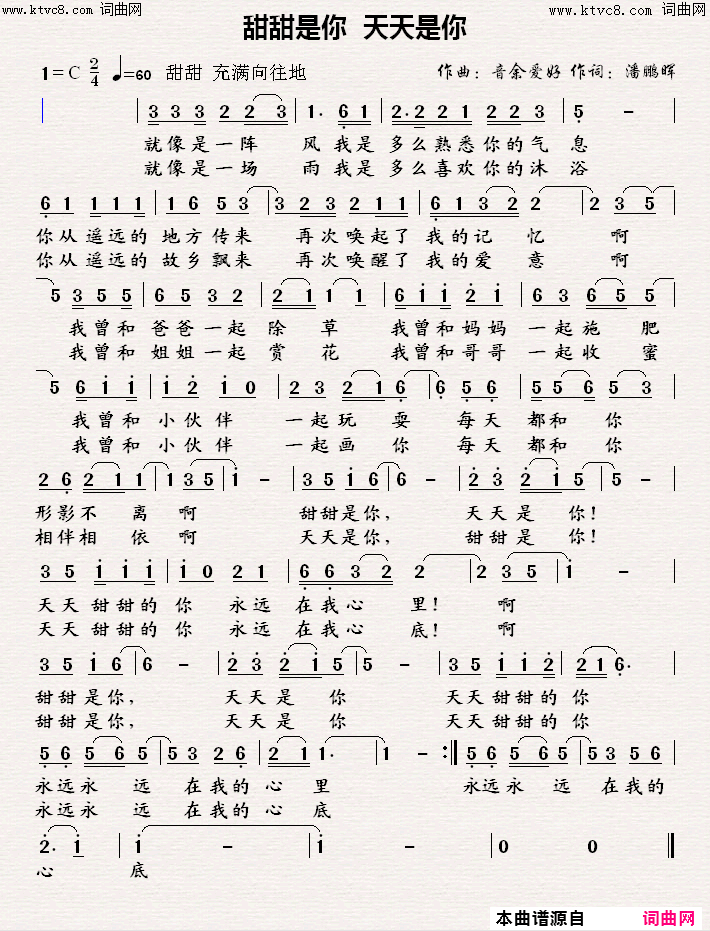 www.ktvc8.com 词曲网
www.ktvc8.com 词曲网
甜甜是你 天天是你
1=C 2/4 ♩=60 甜甜 充满向往地
作曲：音余爱好 作词：潘鹏晖
3 3 3 2 2 3 | 1· 6 1 | 2· 2 2 1 2 2 3 | 5 - |
就像是一阵 风我是 多么熟悉你的气 息
就像是一场 雨我是 多么喜欢你的沐 浴
6 1 1 1 1 | 1 6 5 3 | 3 2 3 2 1 1 | 6 1 3 2 2 | 2 3 5 |
你从遥远的 地方传来 再次唤起了 我的记 忆 啊
你从遥远的 故乡飘来 再次唤醒了 我的爱 意 啊
5 3 5 5 | 6 5 3 2 | 2 1 1 1 | 6 1 1 2 1 | 6 3 6 5 5 |
我曾和 爸爸一起 除 草 我曾和妈妈 一起施 肥
我曾和 姐姐一起 赏 花 我曾和哥哥 一起收 蜜
5 6 1 1 | 1 2 1 0 | 2 3 2 1 6 | 6 5 6 | 5 5 6 5 3 |
我曾和 小伙伴 一起玩 耍 每天 都和 你
我曾和 小伙伴 一起画 你 每天 都和 你
2 6 2 1 1 | 1 3 5 | 1 - | 3 5 1 6 | 6 - | 2 3 2 1 5 | 5 - |
形影不 离 啊 甜甜是你， 天天是 你！
相伴相 依 啊 天天是你， 甜甜是 你！
3 5 1 1 1 | 1 0 2 1 | 6 6 3 2 2 | 2 3 5 | 1 - |
天天 甜甜的 你 永远 在我心 里！ 啊
天天 甜甜的 你 永远 在我心 底！ 啊
3 5 1 6 | 6 - | 2 3 2 1 5 | 5 - | 3 5 1 1 2 | 2 1 6· |
甜甜是你， 天天是 你 天天甜甜的 你
甜甜是你， 天天是 你 天天甜甜的 你
5 6 5 6 5 | 5 3 2 6 | 2 1 1· | 1 - :| 5 6 5 6 5 | 5 3 5 6 |
永远永 远 在我的 心 里 永远永 远 在我的
永远永 远 在我的 心 底
2· 1 | 1 - | 1 - | 0 0 ||
心 底
本曲谱源自 词曲网